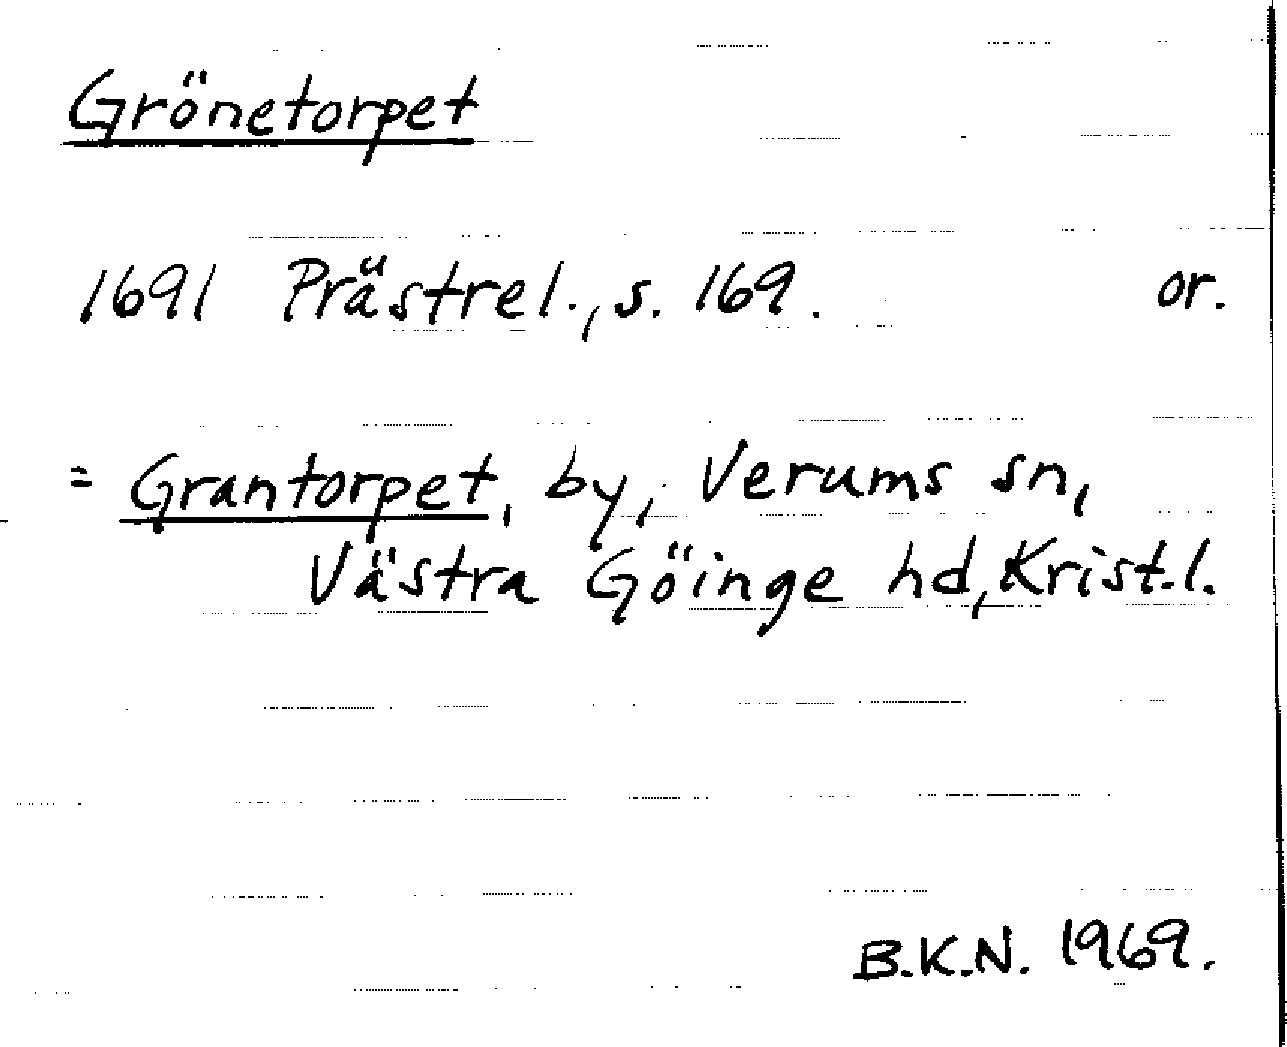 Grönetorpet
1691 Prästrel., s. 169. or.
= Grantorpet, by, Verums sn,
Västra Göinge hd, Krist.l.
B.K.N. 1969.